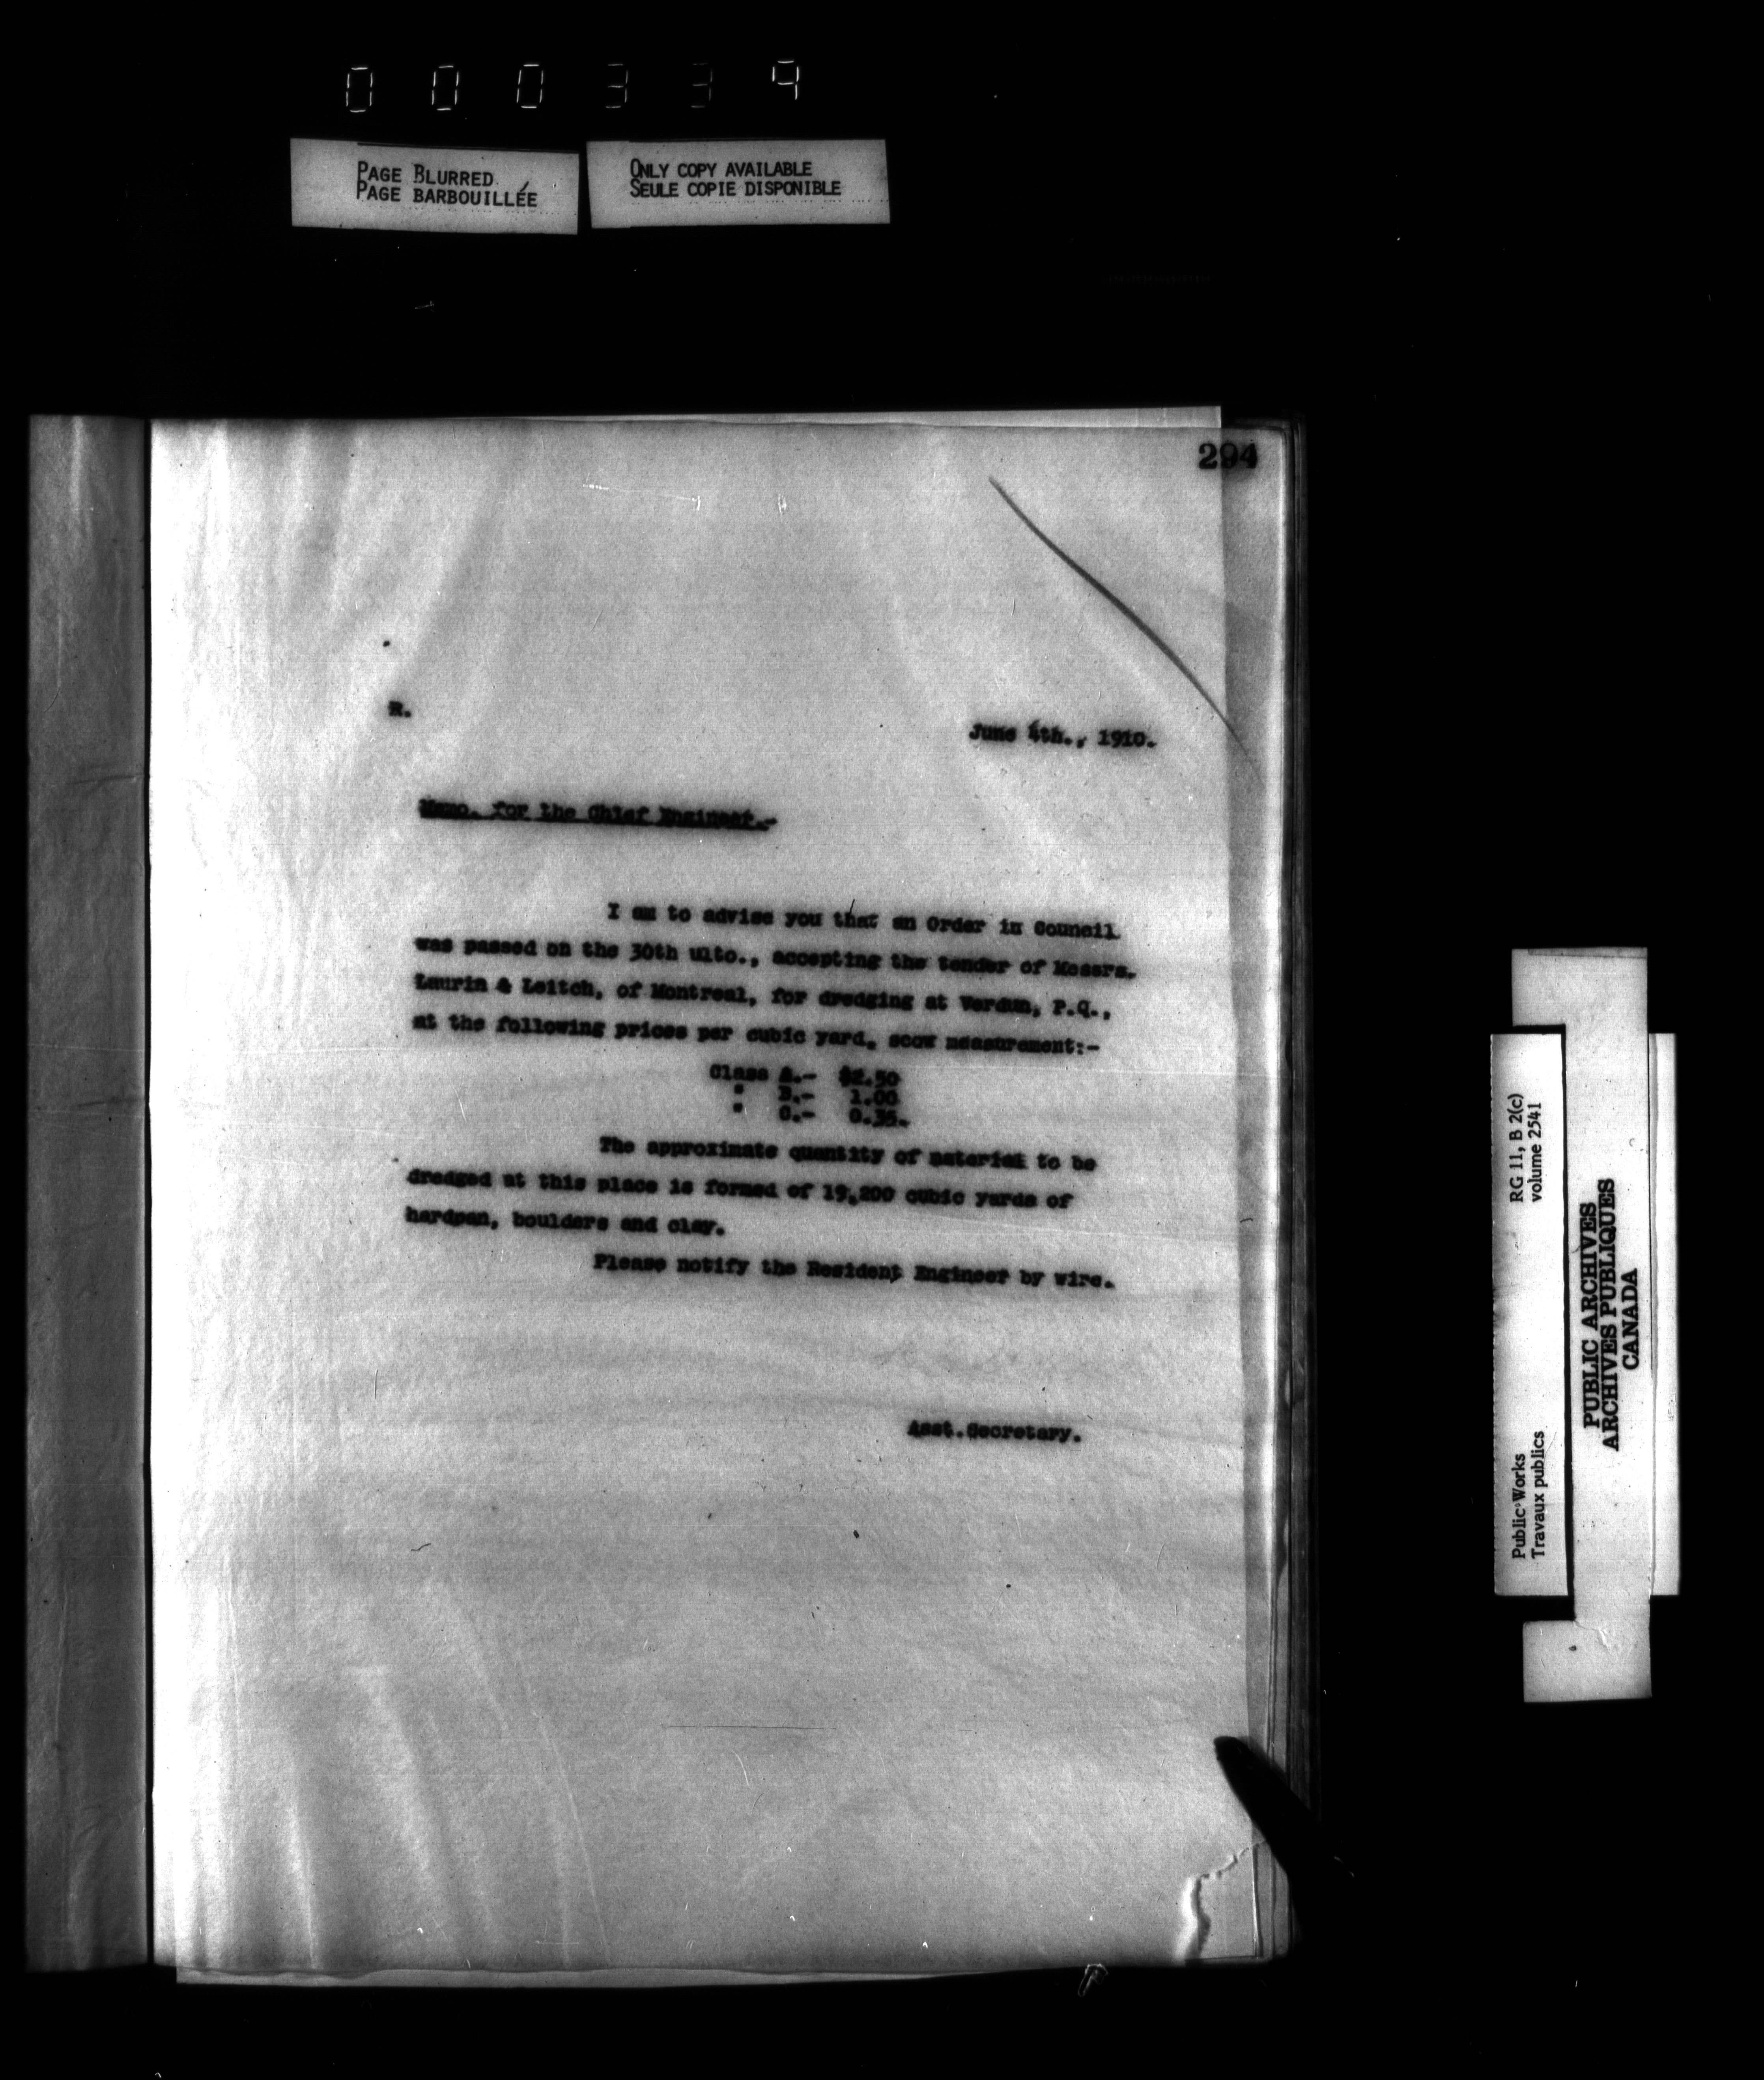 000339
PAGE BLURRED
PAGE BARBOUILLÉE
ONLY COPY AVAILABLE
SEULE COPIE DISPONIBLE
294
R.
June 4th., 1910.
Memo. for the Chief Engineer.-
I am to advise you that an Order in Council
was passed on the 30th ulto., accepting the tender of Messrs.
Laurin & Leitch, of Montreal, for dredging at Verdun, P.Q.,
at the following prices per cubic yard, scow measurement:-
Class A.- $2.50
" B.- 1.00
" C.- 0.35.
The approximate quantity of material to be
dredged at this place is formed of 19,200 cubic yards of
hardpan, boulders and clay.
Please notify the Resident Engineer by wire.
Asst.Secretary.
Public Works
Travaux publics
RG 11, B 2(c)
volume 2541
PUBLIC ARCHIVES
ARCHIVES PUBLIQUES
CANADA